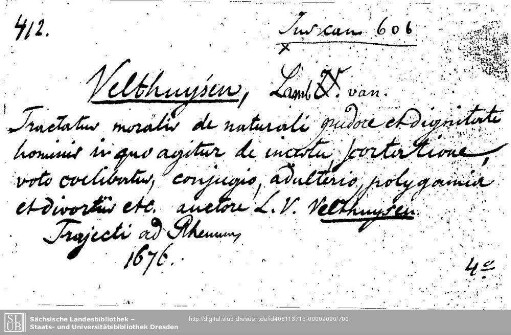 412.
Jus can 606
Velthuysen, Lamb. V. van.
Tractatus moralis de naturali pudore et dignitate
hominis in quo agitur de incestu, scortatione,
voto coelibatus, conjugio, adulterio, polygamia
et divortiis etc. auctore L. V. Velthuysen.
Trajecti ad Rhenum,
1676.
4°
SLUB
Sächsische Landesbibliothek –
Staats- und Universitätsbibliothek Dresden